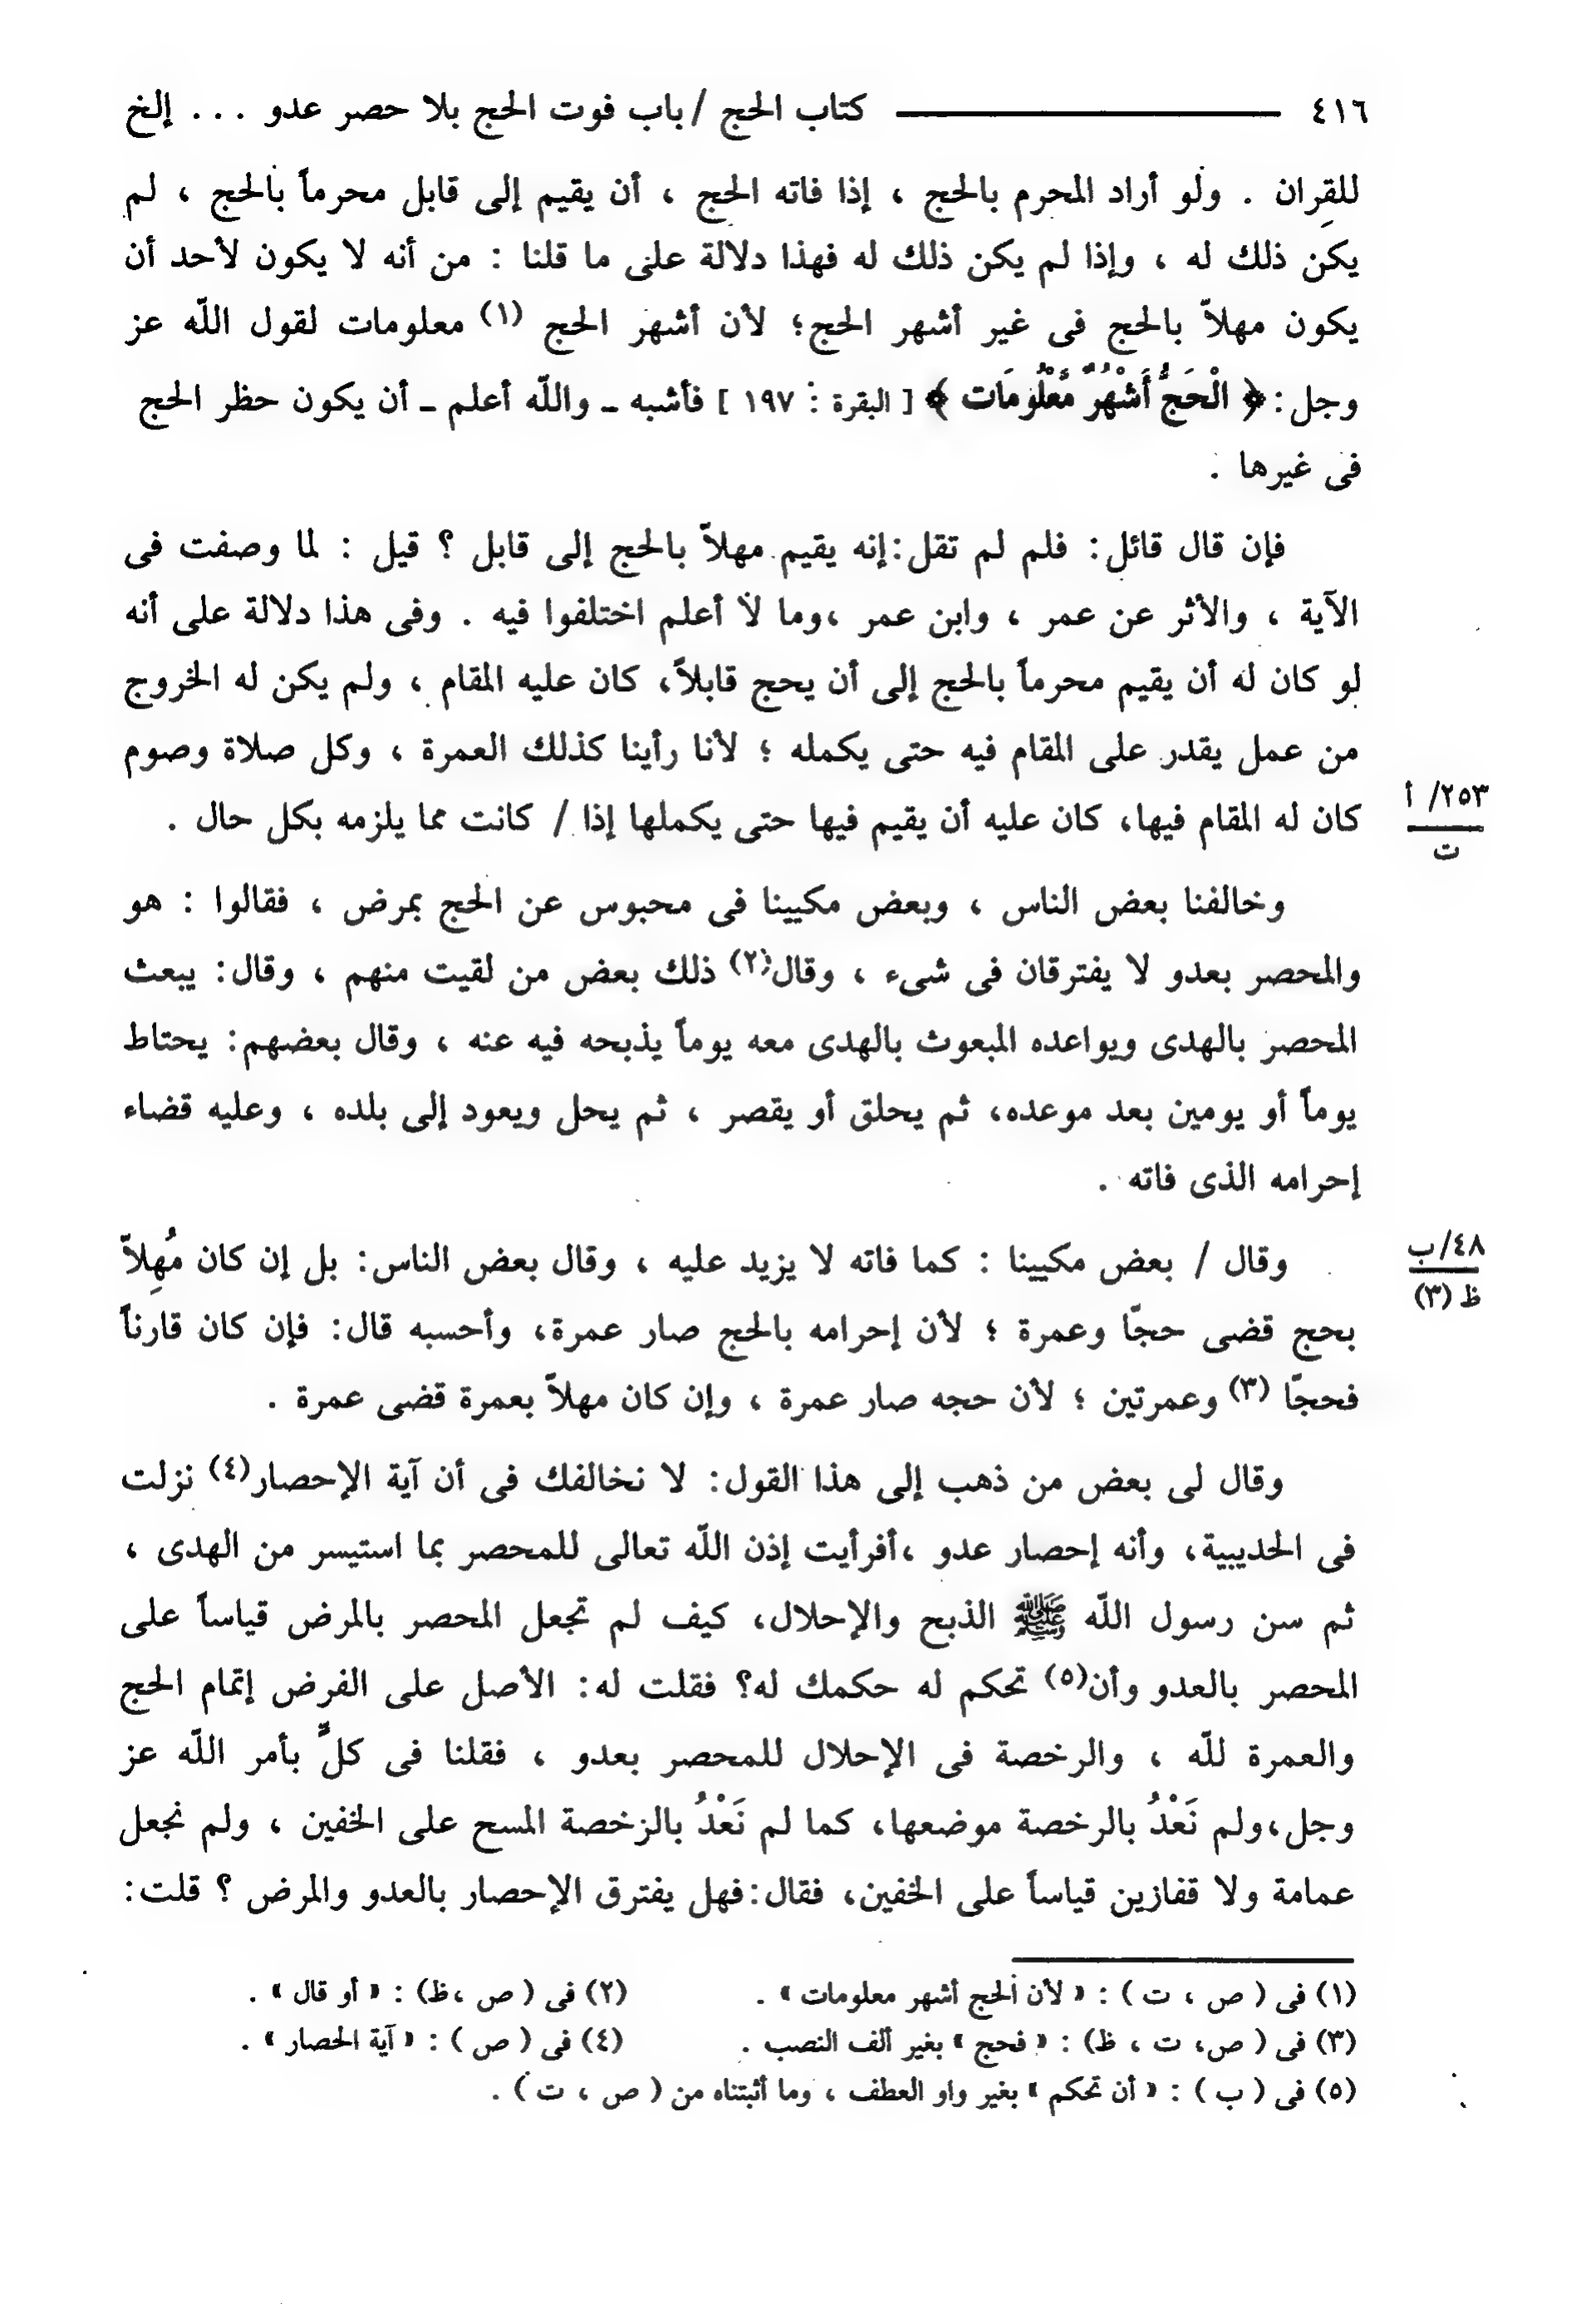 ٤١٦ كتاب الحج / باب فوت الحج بلا حصر عدو ... إلخ
للقِران . ولو أراد المحرم بالحج ، إذا فاته الحج ، أن يقيم إلى قابل محرماً بالحج ، لم
يكن ذلك له ، وإذا لم يكن ذلك له فهذا دلالة على ما قلنا : من أنه لا يكون لأحد أن
يكون مهلاّ بالحج فى غير أشهر الحج؛ لأن أشهر الحج (١) معلومات لقول اللّه عز
وجل: ﴿ الْحَجُّ أَشْهُرٌ مَّعْلُومَات ﴾ [ البقرة : ١٩٧ ] فأشبه ـ واللّه أعلم ـ أن يكون حظر الحج
فى غيرها .
فإن قال قائل: فلم لم تقل:إنه يقيم مهلاّ بالحج إلى قابل ؟ قيل : لما وصفت فى
الآية ، والأثر عن عمر ، وابن عمر ،وما لا أعلم اختلفوا فيه . وفى هذا دلالة على أنه
لو كان له أن يقيم محرماً بالحج إلى أن يحج قابلاً، كان عليه المقام ، ولم يكن له الخروج
من عمل يقدر على المقام فيه حتى يكمله ؛ لأنا رأينا كذلك العمرة ، وكل صلاة وصوم
كان له المقام فيها، كان عليه أن يقيم فيها حتى يكملها إذا / كانت مما يلزمه بكل حال .
٢٥٣/ أ
ت
وخالفنا بعض الناس ، وبعض مكيينا فى محبوس عن الحج بمرض ، فقالوا : هو
والمحصر بعدو لا يفترقان فى شىء ، وقال(٢) ذلك بعض من لقيت منهم ، وقال: يبعث
المحصر بالهدى ويواعده المبعوث بالهدى معه يوماً يذبحه فيه عنه ، وقال بعضهم: يحتاط
يوماً أو يومين بعد موعده، ثم يحلق أو يقصر ، ثم يحل ويعود إلى بلده ، وعليه قضاء
إحرامه الذى فاته .
وقال / بعض مكيينا : كما فاته لا يزيد عليه ، وقال بعض الناس: بل إن كان مُهِلاّ
٤٨/ب
ظ (٣)
بحج قضى حجّا وعمرة ؛ لأن إحرامه بالحج صار عمرة، وأحسبه قال: فإن كان قارناً
فحجّا (٣) وعمرتين ؛ لأن حجه صار عمرة ، وإن كان مهلاّ بعمرة قضى عمرة .
وقال لى بعض من ذهب إلى هذا القول: لا نخالفك فى أن آية الإحصار(٤) نزلت
فى الحديبية، وأنه إحصار عدو ،أفرأيت إذن اللّه تعالى للمحصر بما استيسر من الهدى ،
ثم سن رسول اللّه ﷺ الذبح والإحلال، كيف لم تجعل المحصر بالمرض قياساً على
المحصر بالعدو وأن(٥) تحكم له حكمك له؟ فقلت له: الأصل على الفرض إتمام الحج
والعمرة للّه ، والرخصة فى الإحلال للمحصر بعدو ، فقلنا فى كلٍّ بأمر اللّه عز
وجل،ولم نَعْدُ بالرخصة موضعها، كما لم نَعْدُ بالرخصة المسح على الخفين ، ولم نجعل
عمامة ولا قفازين قياساً على الخفين، فقال:فهل يفترق الإحصار بالعدو والمرض ؟ قلت:
(١) فى ( ص ، ت ) : « لأن الحج أشهر معلومات » . (٢) فى ( ص ،ظ) : « أو قال » .
(٣) فى ( ص، ت ، ظ) : « فحج » بغير ألف النصب . (٤) فى ( ص ) : « آية الحصار » .
(٥) فى ( ب ) : « أن تحكم » بغير واو العطف ، وما أثبتناه من ( ص ، ت ) .